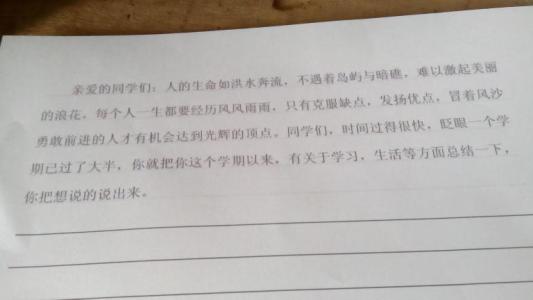 亲爱的同学们：人的生命如洪水奔流，不遇着岛屿与暗礁，难以激起美丽
的浪花。每个人一生都要经历风风雨雨，只有克服缺点，发扬优点，冒着风沙
勇敢前进的人才有机会达到光辉的顶点。同学们，时间过得很快，眨眼一个学
期已过了大半，你就把你这个学期以来，有关于学习，生活等方面总结一下，
你把想说的说出来。